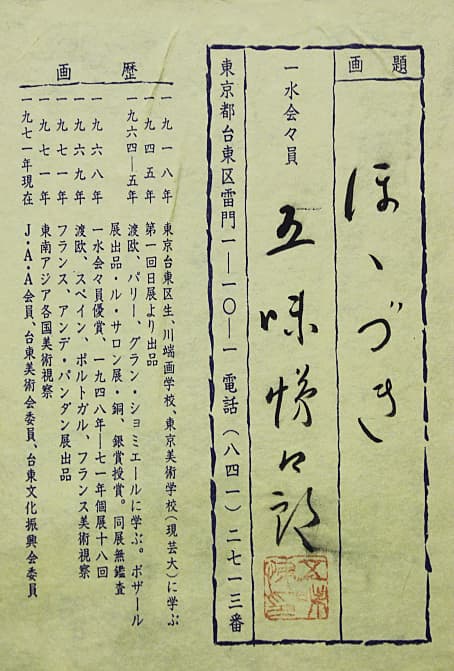 画題
ほゝづき
一水会々員
五味悌四郎
東京都台東区雷門一—一〇—一 電話(八四一)二七一三番
画歴
一九一八年 東京台東区生、川端画学校、東京美術学校(現芸大)に学ぶ
一九四五年 第一回日展より出品
一九六四—五年 渡欧、パリー、グラン・ショミエールに学ぶ。ボザール
展出品・ル・サロン展・銅、銀賞授賞。同展無鑑査
一九六八年 一水会々員優賞、一九四八年—七一年個展十八回
一九六九年 渡欧、スペイン、ポルトガル、フランス美術視察
一九七一年 フランス、アンデ・パンダン展出品
一九七一年 東南アジア各国美術視察
一九七一年現在 J・A・A会員、台東美術会委員、台東文化振興会委員